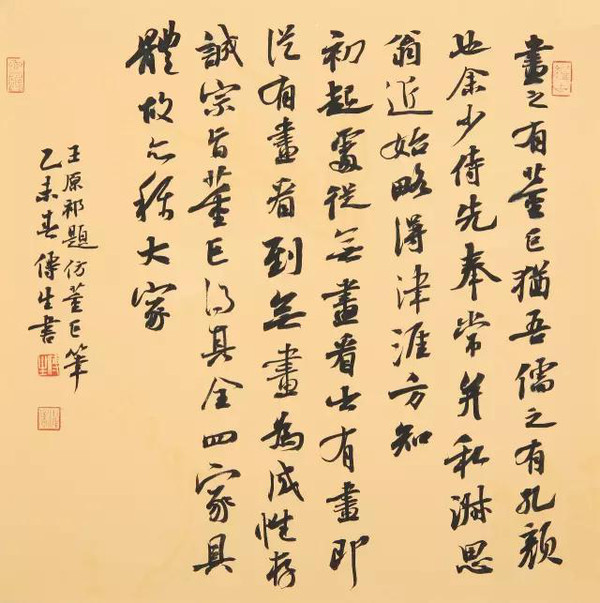 畫之有董巨猶吾儒之有孔顏
也余少侍先奉常并私淑思
翁近始略得津涯方知
初起處從無畫看出有畫即
從有畫看到無畫為成性存
誠宗旨董巨得其全四家具
體故亦稱大家
王原祁題仿董巨筆
乙未春傳生書